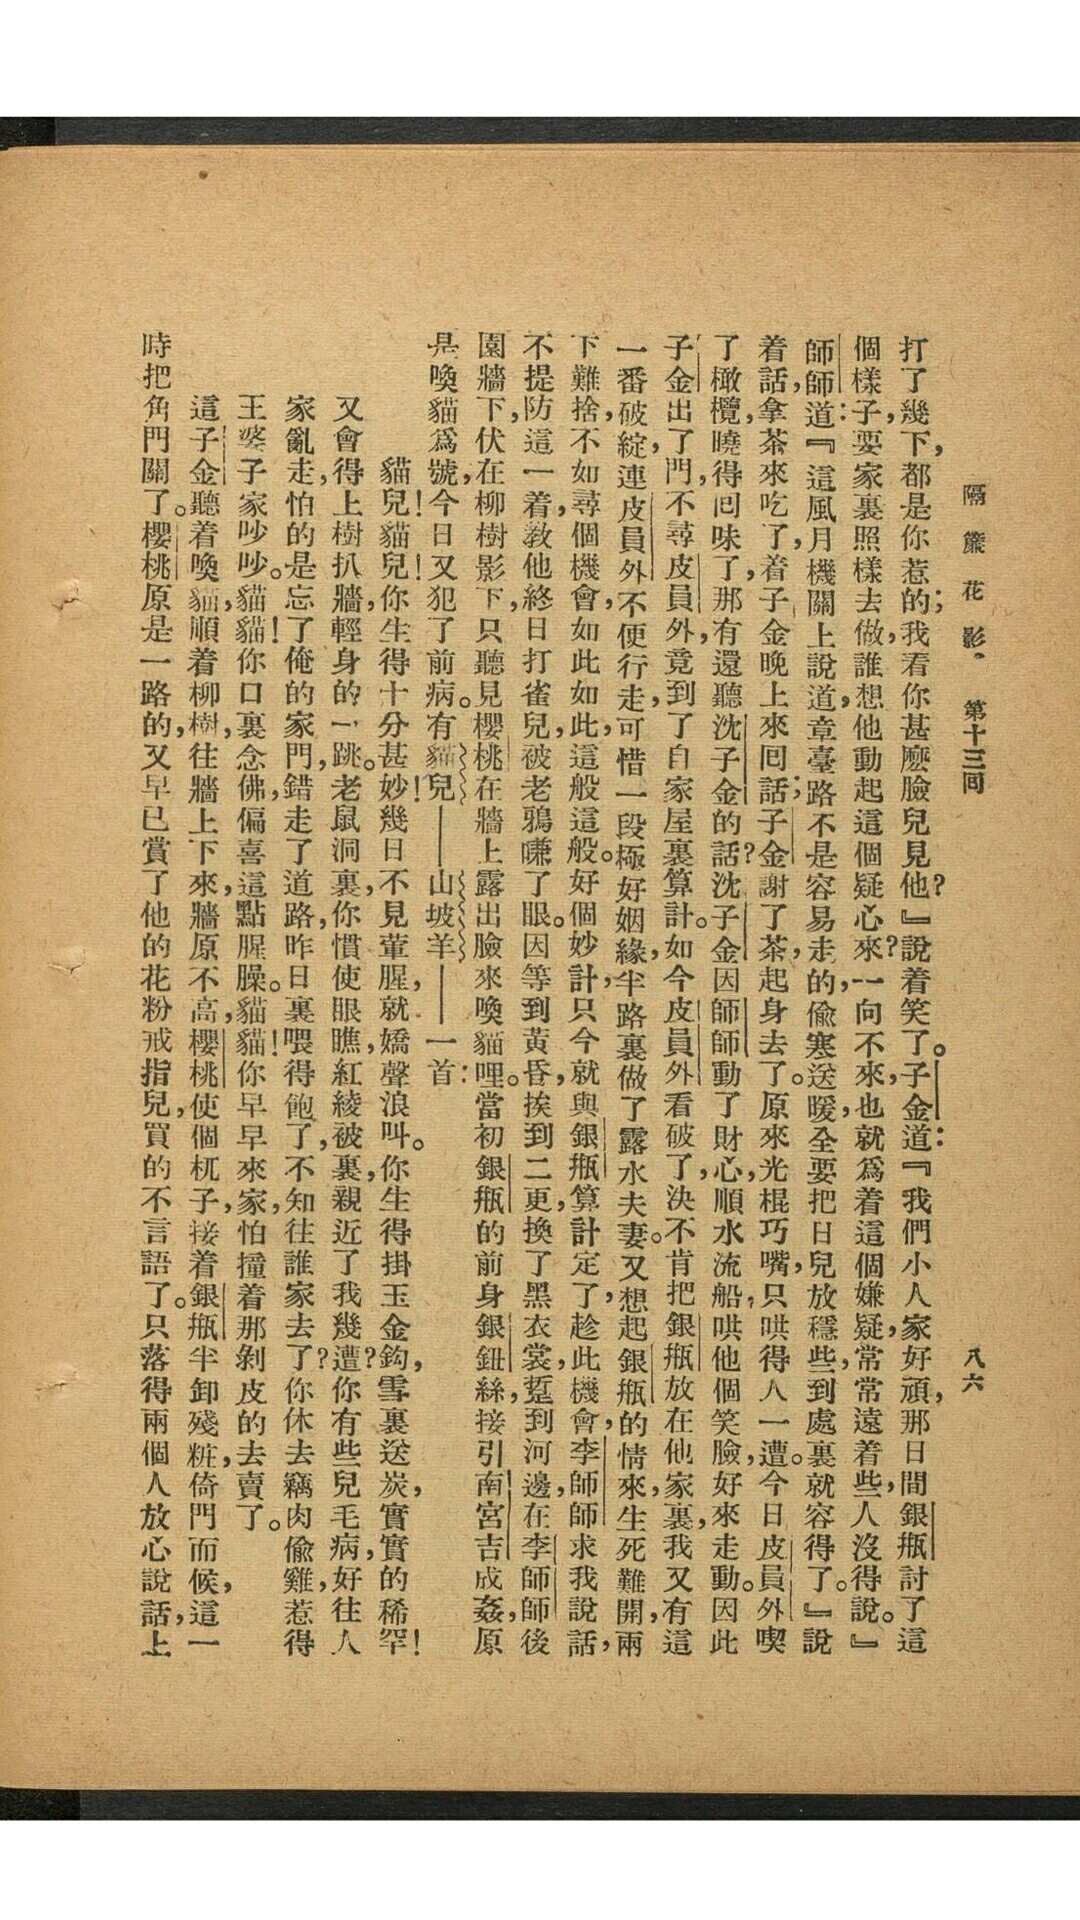 隔簾花影 第十三回 八六
打了幾下，都是你惹的；我看你甚麽臉兒見他？』說着笑了。子金道：『我們小人家好頑，那日間銀瓶討了這
個樣子；要家裏照樣去做，誰想他動起這個疑心來？一向不來，也就爲着這個嫌疑，常常遠着些人沒得說。』
師師道：『這風月機關上說道，章臺路不是容易走的，偸寒送暖，全要把日兒放穩些，到處裏就容得了。』說
着話，拿茶來吃了，着子金晚上來囘話；子金謝了茶，起身去了。原來光棍巧嘴，只哄得人一遭。今日皮員外喫
了橄欖，曉得囘味了，那有還聽沈子金的話？沈子金因師師動了財心，順水流船，哄他個笑臉，好來走動。因此
子金出了門，不尋皮員外，竟到了自家屋裏算計。如今皮員外看破了，決不肯把銀瓶放在他家裏，我又有這
一番破綻，連皮員外不便行走，可惜一段極好姻緣，半路裏做了露水夫妻。又想起銀瓶的情來，生死難開，兩
下難捨，不如尋個機會，如此如此，這般這般。好個妙計，只今就與銀瓶算計定了，趁此機會，李師師求我說話，
不提防這一着，教他終日打雀兒，被老鴉嗛了眼。因等到黃昏，挨到二更，換了黑衣裳，踅到河邊，在李師師後
園牆下，伏在柳樹影下，只聽見櫻桃在牆上露出臉來喚貓哩。當初銀瓶的前身銀鈕絲，接引南宮吉成姦，原
是喚貓爲號，今日又犯了前病。有貓兒——山坡羊——一首：
貓兒！貓兒！你生得十分甚妙！幾日不見葷腥，就嬌聲浪叫。你生得掛玉金鈎，雪裏送炭，實實的稀罕！
又會得上樹扒牆，輕身的一跳。老鼠洞裏，你慣使眼瞧，紅綾被裏，親近了我幾遭？你有些兒毛病，好往人
家亂走，怕的是忘了俺的家門，錯走了道路，昨日裏喂得飽了，不知往誰家去了？你休去竊肉偸雞，惹得
王婆子家吵吵。貓貓！你口裏念佛，偏喜這點腥臊。貓貓！你早早來家，怕撞着那剝皮的去賣了。
這子金聽着喚貓，順着柳樹，往牆上下來，牆原不高，櫻桃使個杌子，接着銀瓶半卸殘粧，倚門而候，這一
時把角門關了。櫻桃原是一路的，又早已賞了他的花粉戒指兒，買的不言語了。只落得兩個人放心說話，上